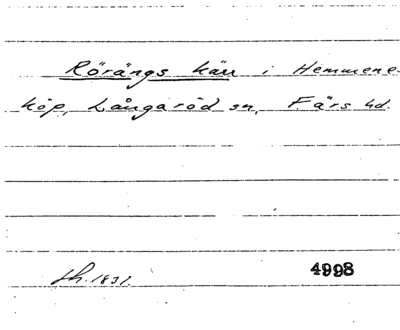 Rörängs kärr i Hemmene-
köp, Långaröd sn, Färs hd.
sh. 1831. 4998